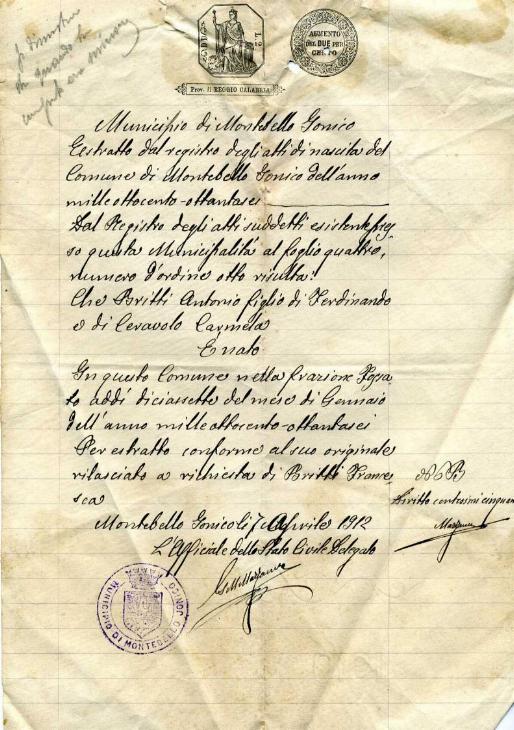 AUMENTO
DEL DUE PER
CENTO
Prov. di REGGIO CALABRIA
Municipio di Montebello Jonico
Estratto dal registro degli atti di nascita del
Comune di Montebello Jonico dell'anno
mille ottocento-ottantasei
Dal Registro degli atti suddetti esistente pres
so questa Municipalità al foglio quattro,
numero d'ordine otto risulta:
Che Britti Antonio figlio di Ferdinando
e di Ceravolo Carmela
È nato
In questo Comune nella frazione Fossa
to addì diciassette del mese di Gennaio
dell'anno mille ottocento-ottantasei
Per estratto conforme al suo originale
rilasciato a richiesta di Britti France
sca
Diritto centesimi cinquan
Montebello Jonico li 7 Aprile 1912
L'Officiale dello Stato Civile Delegato
MUNICIPIO DI MONTEBELLO JONICO